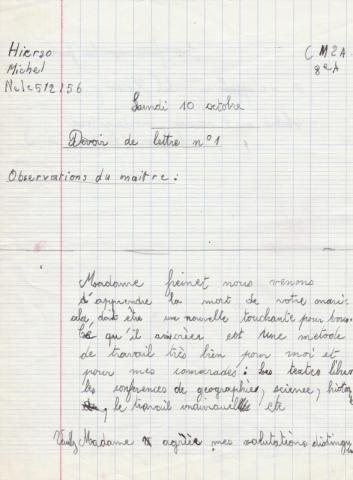 Hierso
Michel
N.c.l.c 512/56
CM2A
8eA
Samdi 10 octobre
Devoir de lettre n°1
Observations du maitre :
Madame freinet nous venons
d'apprendre la mort de votre marie
ala doit être une nouvelle touchante pour tous.
Cé qu'il a crèer est une metode
de travail très bien pour moi et
pour mes camarades : Les textes libres
les conferences de geographie, science, histoi
, le travail individuelle etc
Veuillz Madame agrèèr mes salutations distingu